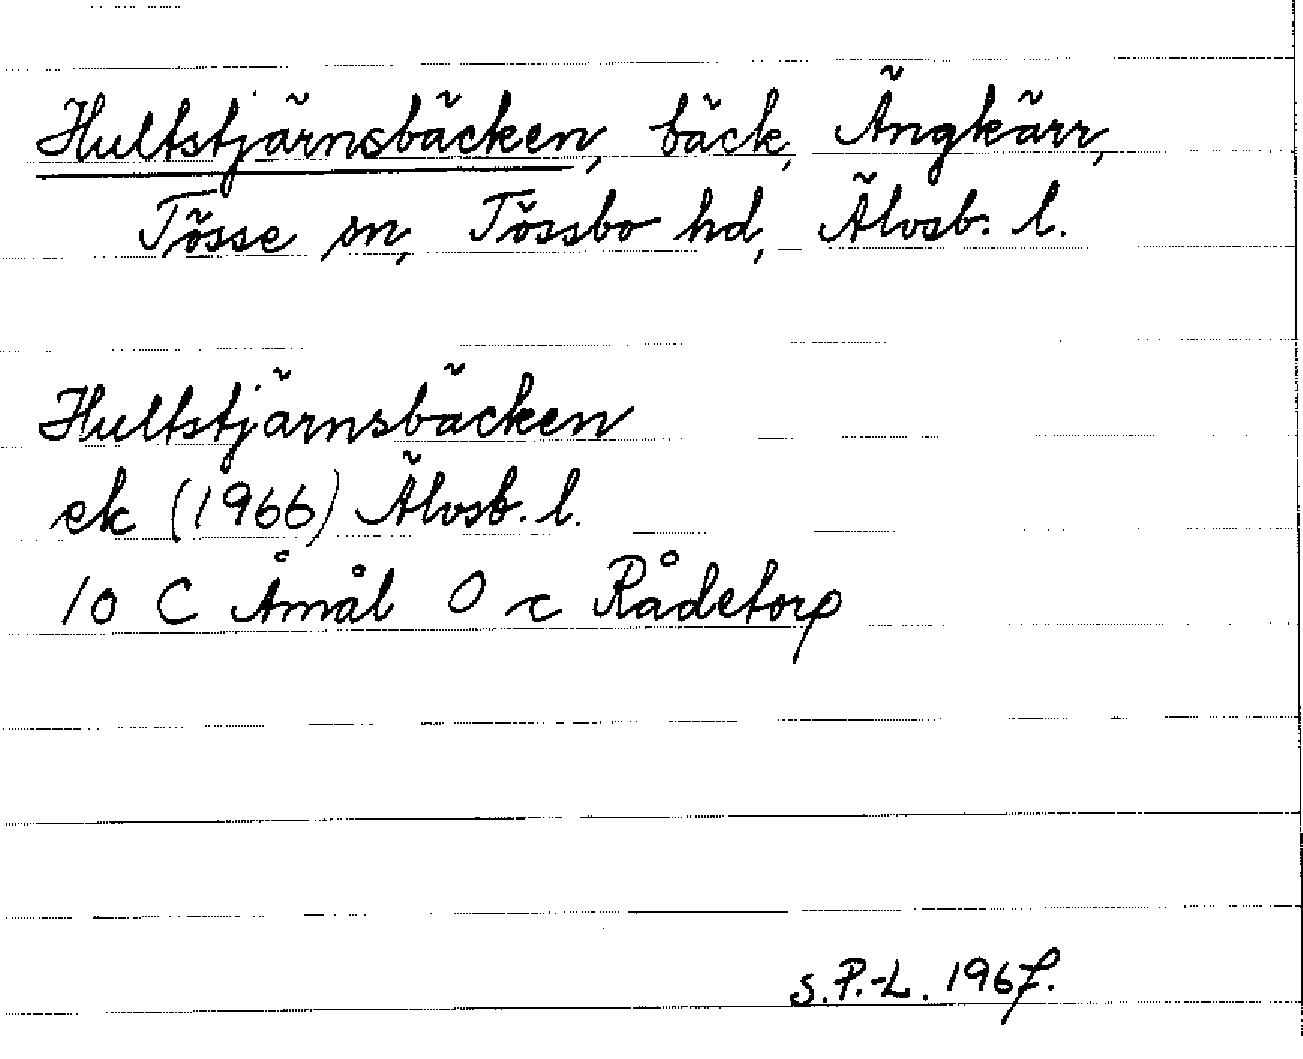 Hultstjärnsbäcken, bäck, Ängkärr,
Tösse sn, Tössbo hd, Älvsb. l.
Hultstjärnsbäcken
ek (1966) Älvsb. l.
10 C Åmål O c Rådetorp
S.P.-L. 1967.